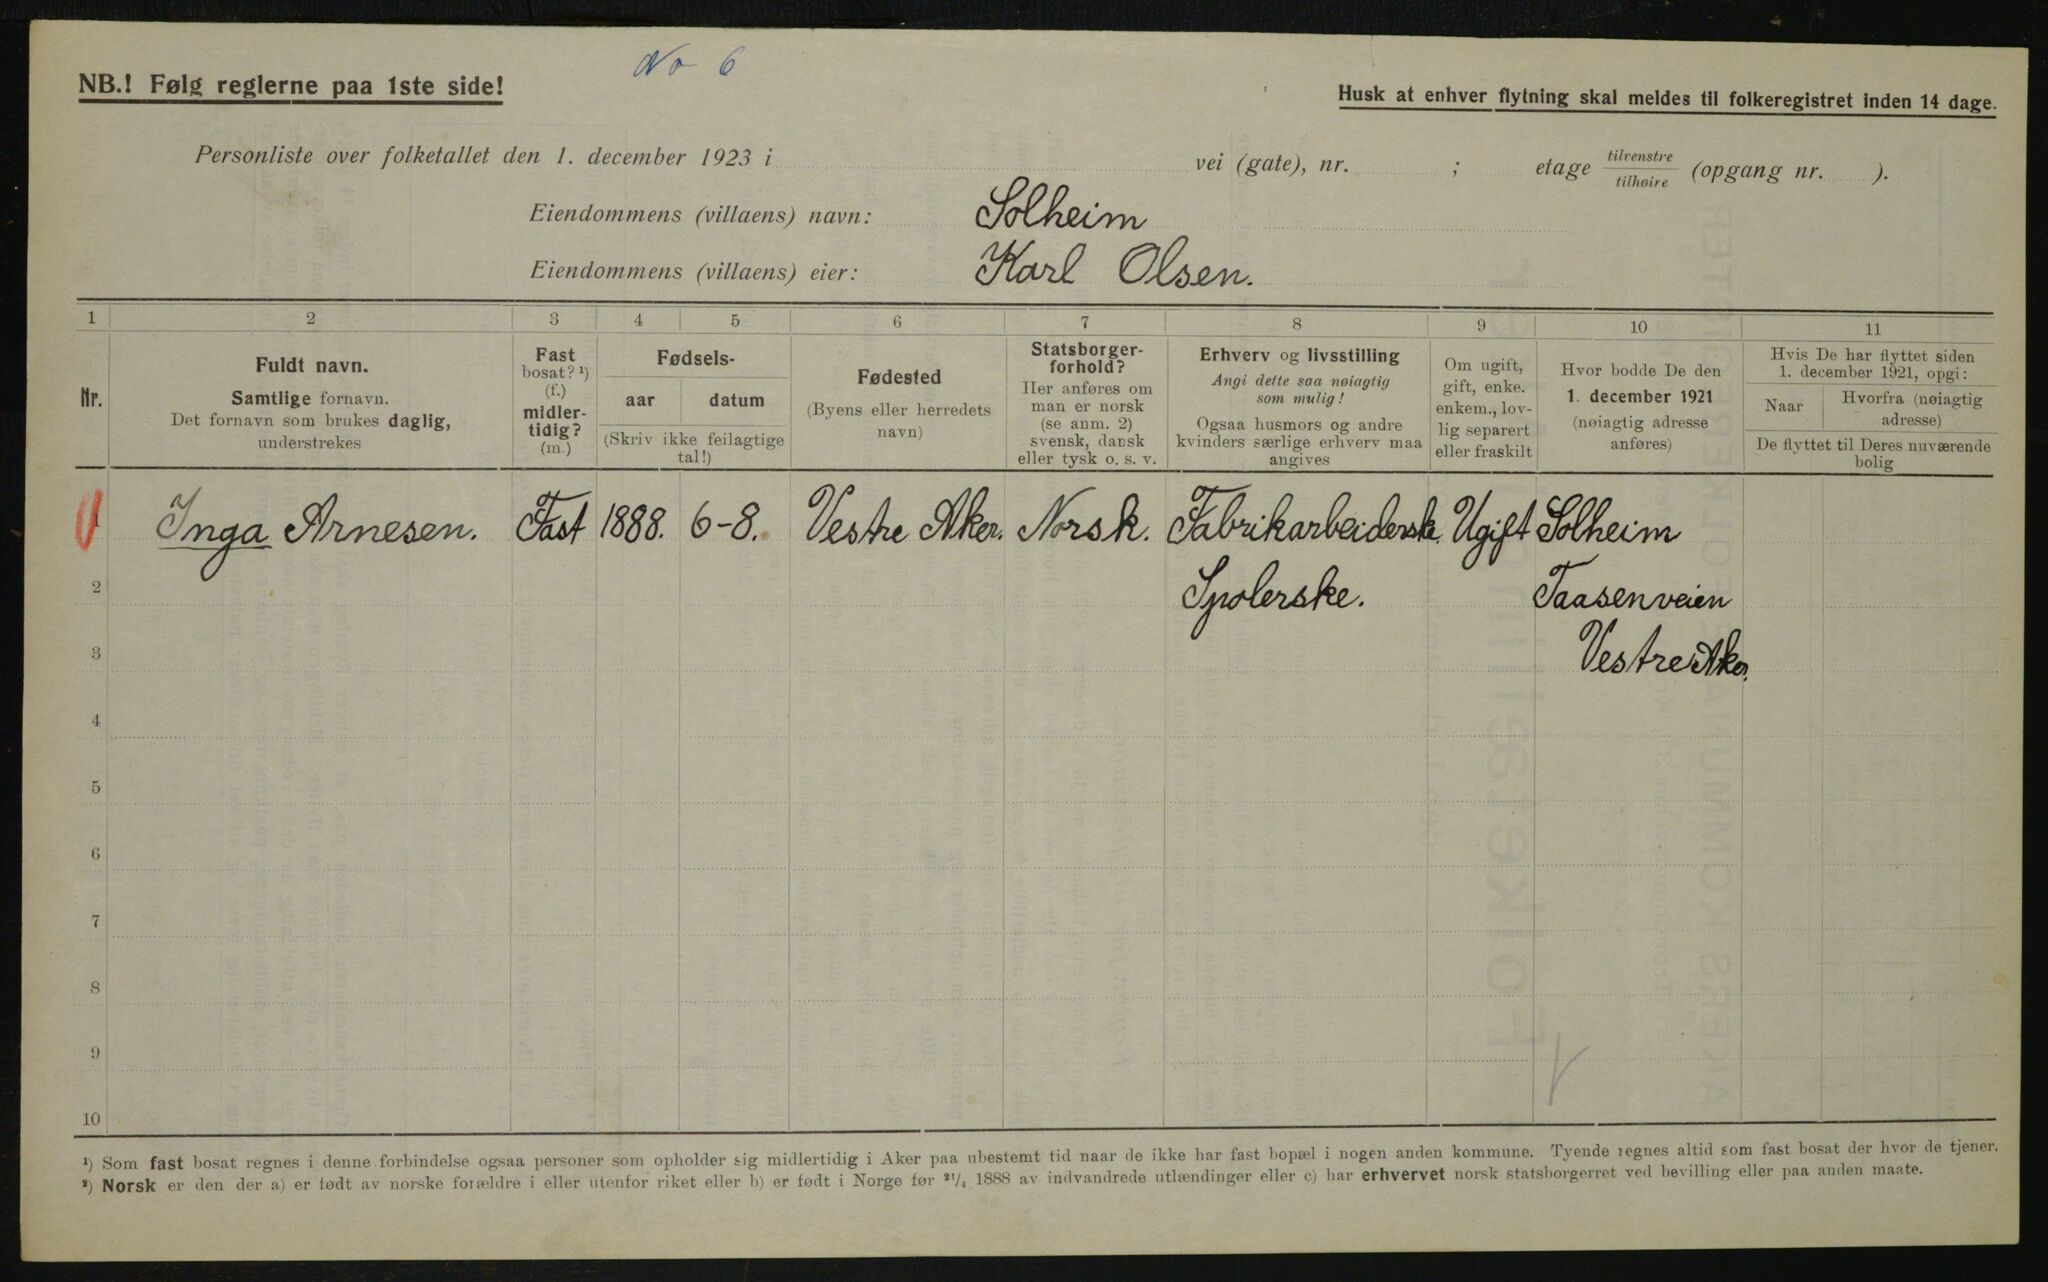 No 6
NB.! Følg reglerne paa 1ste side!
Husk at enhver flytning skal meldes til folkeregistret inden 14 dage.
Personliste over folketallet den 1. december 1923 i vei (gate), nr. ; etage tilvenstre/tilhøire (opgang nr. ).
Eiendommens (villaens) navn: Solheim
Eiendommens (villaens) eier: Karl Olsen.
1 2 3 4 5 6 7 8 9 10 11
Nr.
Fuldt navn.
Samtlige fornavn.
Det fornavn som brukes daglig,
understrekes
Fast
bosat? ¹)
(f.)
midler-
tidig?
(m.)
Fødsels-
aar datum
(Skriv ikke feilagtige
tal!)
Fødested
(Byens eller herredets
navn)
Statsborger-
forhold?
Her anføres om
man er norsk
(se anm. 2)
svensk, dansk
eller tysk o. s. v.
Erhverv og livsstilling
Angi dette saa nøiagtig
som mulig!
Ogsaa husmors og andre
kvinders særlige erhverv maa
angives
Om ugift,
gift, enke.
enkem., lov-
lig separert
eller fraskilt
Hvor bodde De den
1. december 1921
(nøiagtig adresse
anføres)
Hvis De har flyttet siden
1. december 1921, opgi:
Naar
Hvorfra (nøiagtig
adresse)
De flyttet til Deres nuværende
bolig
1 Inga Arnesen. Fast 1888. 6-8. Vestre Aker. Norsk. Fabrikarbeiderske. Ugift Solheim
2 Spolerske. Taasenveien
3 Vestre Aker.
4
5
6
7
8
9
10
¹) Som fast bosat regnes i denne forbindelse ogsaa personer som opholder sig midlertidig i Aker paa ubestemt tid naar de ikke har fast bopæl i nogen anden kommune. Tyende regnes altid som fast bosat der hvor de tjener.
²) Norsk er den der a) er født av norske forældre i eller utenfor riket eller b) er født i Norge før ²¹/₄ 1888 av indvandrede utlændinger eller c) har erhvervet norsk statsborgerret ved bevilling eller paa anden maate.